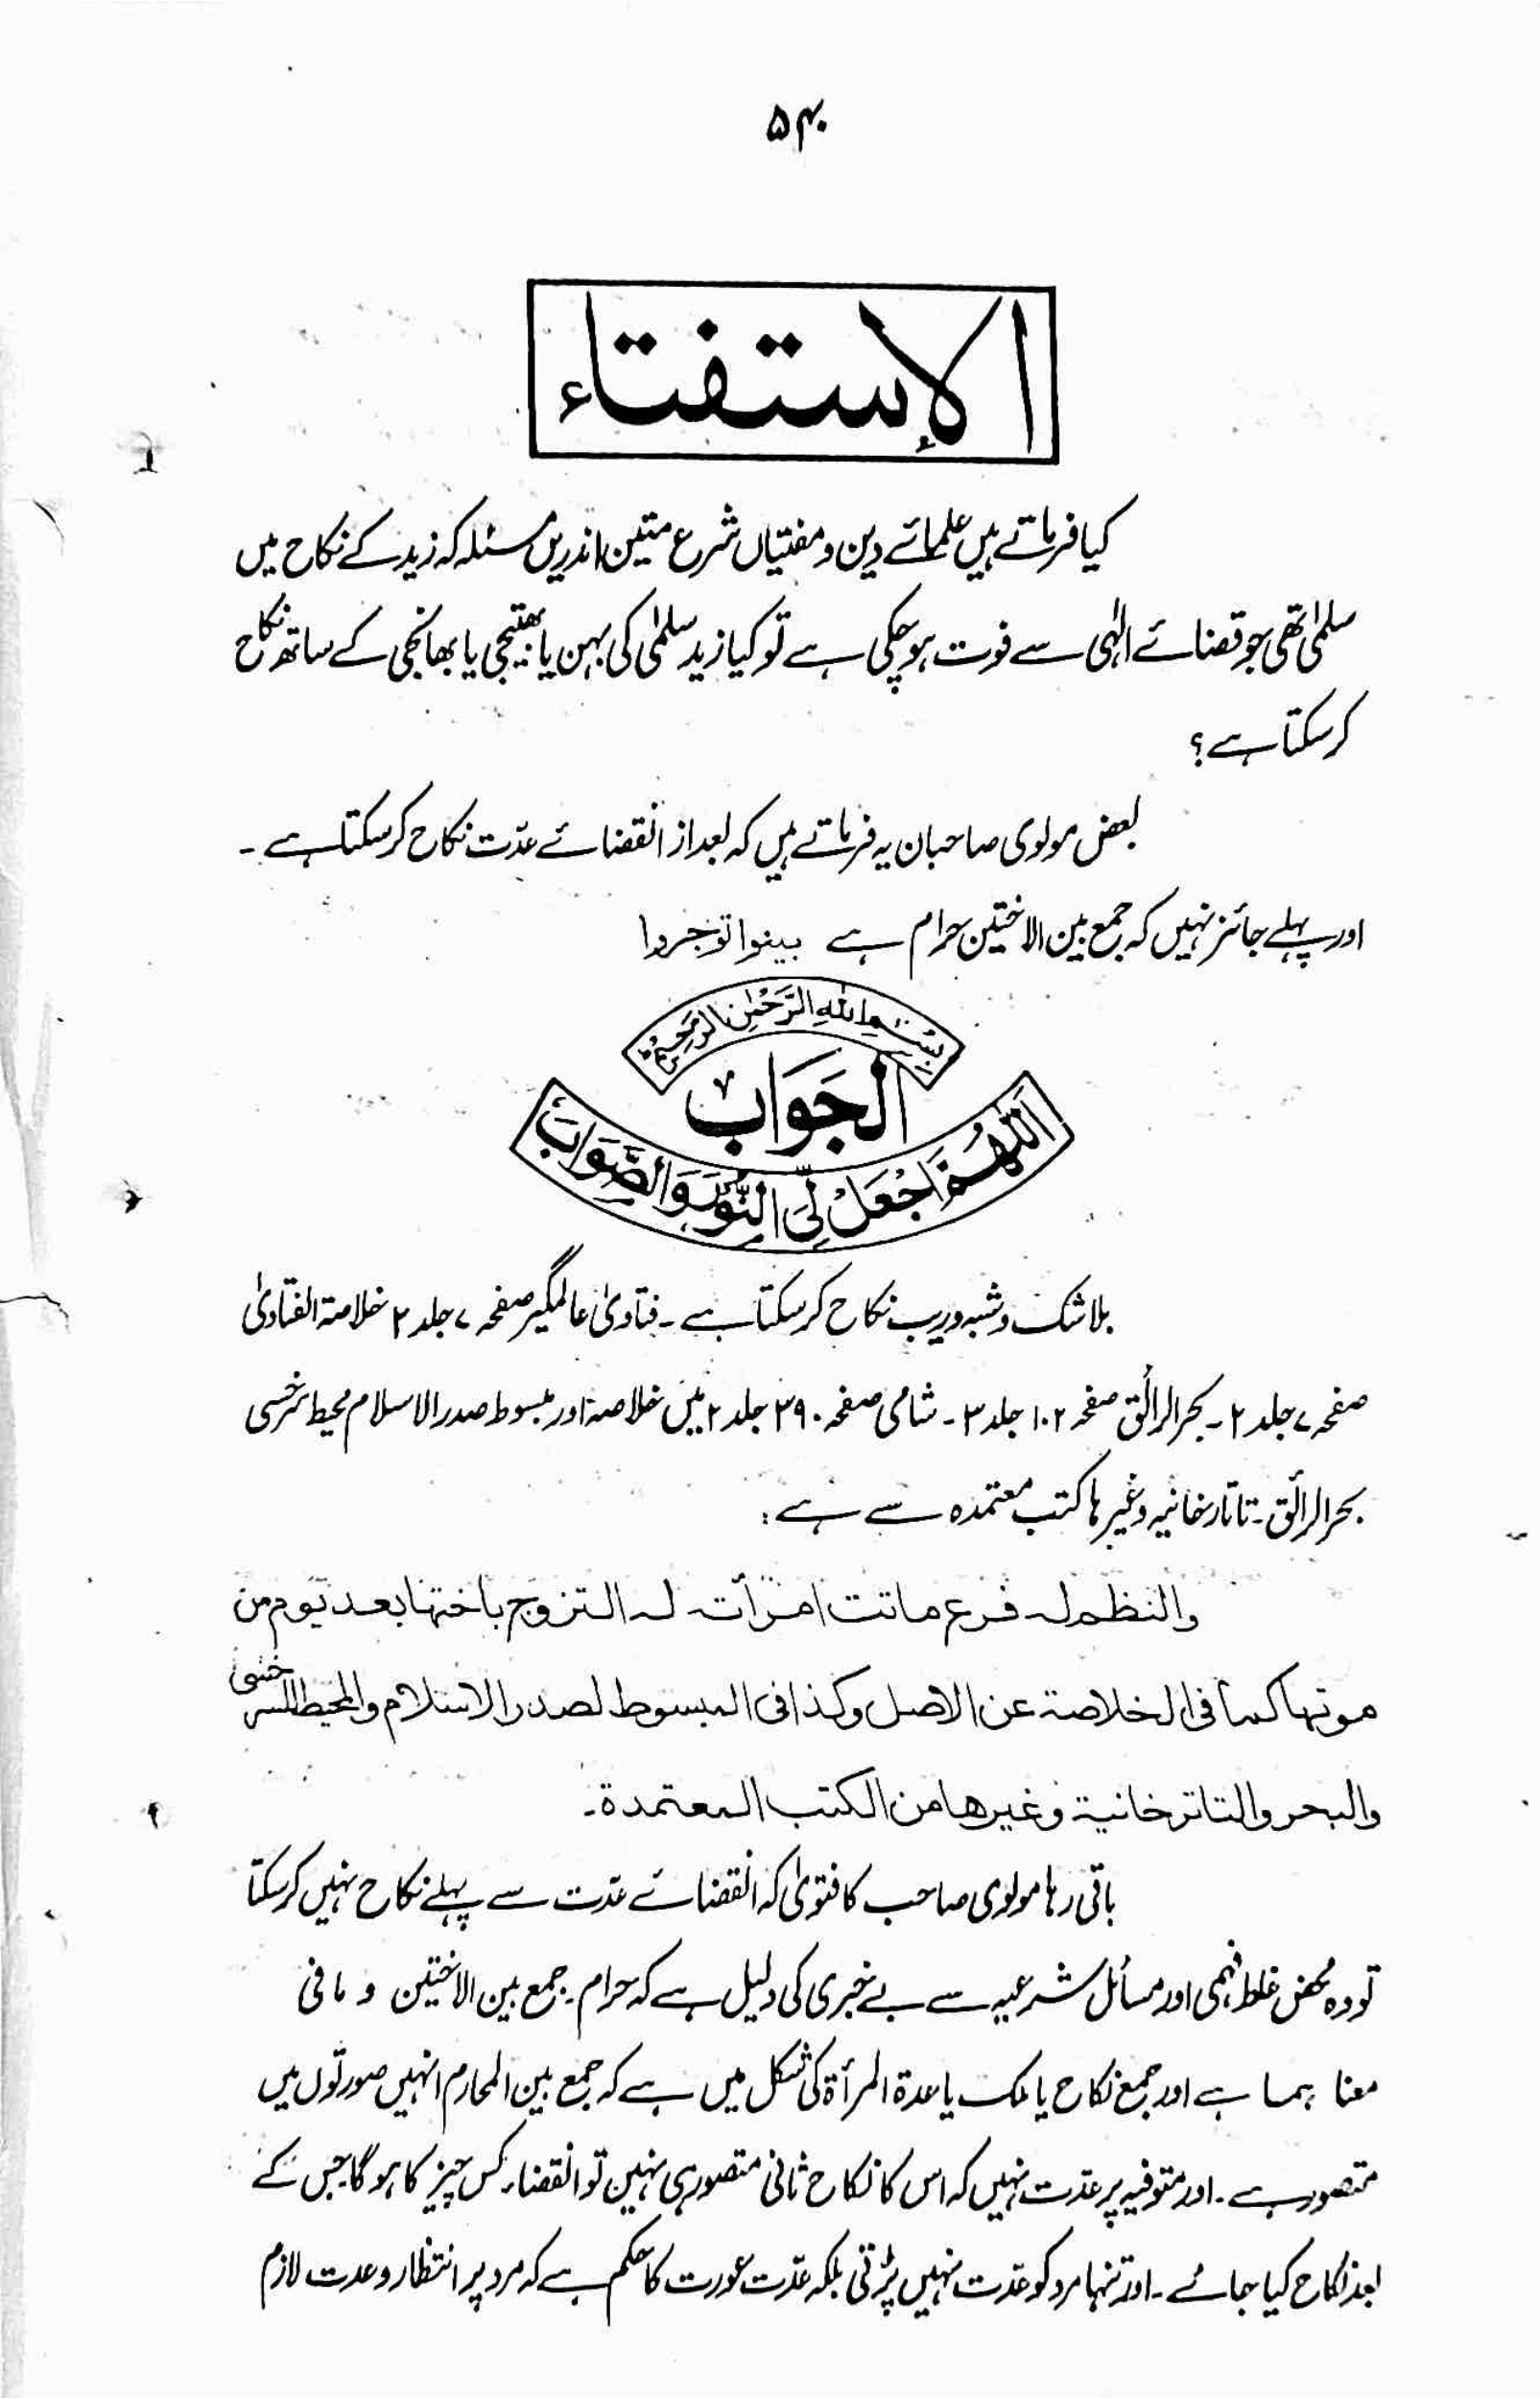 ۵۴۰
الإستفتاء
کیا فرماتے ہیں علمائے دین و مفتیاں شرع متین اندریں مسئلہ کہ زید کے نکاح میں
سلمیٰ تھی جو قضائے الٰہی سے فوت ہو چکی ہے تو کیا زید سلمیٰ کی بہن یا بھتیجی یا بھانجی کے ساتھ نکاح
کر سکتا ہے؟
بعض مولوی صاحبان یہ فرماتے ہیں کہ بعد از انقضائے عدّت نکاح کر سکتا ہے ۔
اور پہلے جائز نہیں کہ جمع بین الاختین حرام ہے بینوا توجروا
بِسْمِ اللهِ الرَّحْمٰنِ الرَّحِيْمِ
الجَوَابْ
اَللّٰهُمَّ اجْعَلْ لِّيَ النُّوْرَ وَالصَّوَابَ
بلا شک و شبہ و ریب نکاح کر سکتا ہے ۔ فتاویٰ عالمگیر صفحہ ۷ جلد ۲ خلاصۃ الفتاویٰ
صفحہ ۷ جلد ۲ ۔ بحر الرائق صفحہ ۱۰۲ جلد ۳ ۔ شامی صفحہ ۳۹۰ جلد ۲ میں خلاصۃ اور مبسوط صدر الاسلام محیط سرخسی
بحر الرائق ۔ تاتارخانیہ وغیرہا کتب معتمدہ سے ہے :
والنظم له فرع ماتت امرأته له التزوج باختها بعد يوم من
موتها كما في الخلاصة عن الاصل وكذا في المبسوط لصدر الاسلام والمحيط للسرخسى
والبحر والتاترخانية وغيرها من الكتب المعتمدة۔
باقی رہا مولوی صاحب کا فتویٰ کہ انقضائے عدّت سے پہلے نکاح نہیں کر سکتا
تو وہ محض غلط فہمی اور مسائل شرعیہ سے بے خبری کی دلیل ہے کہ حرام ۔ جمع بین الاختین و ما فی
معنا ہما ہے اور جمع نکاح یا ملک یا عدۃ المرأۃ کی شکل میں ہے کہ جمع بین المحارم انہیں صورتوں میں
متصور ہے ۔ اور متوفیہ پر عدّت نہیں کہ اس کا نکاح ثانی متصور ہی نہیں تو انقضاء کس چیز کا ہوگا جس کے
بعد نکاح کیا جائے ۔ اور تنہا مرد کو عدّت نہیں پڑتی بلکہ عدّت عورت کا حکم ہے کہ مرد پر انتظار و عدت لازم